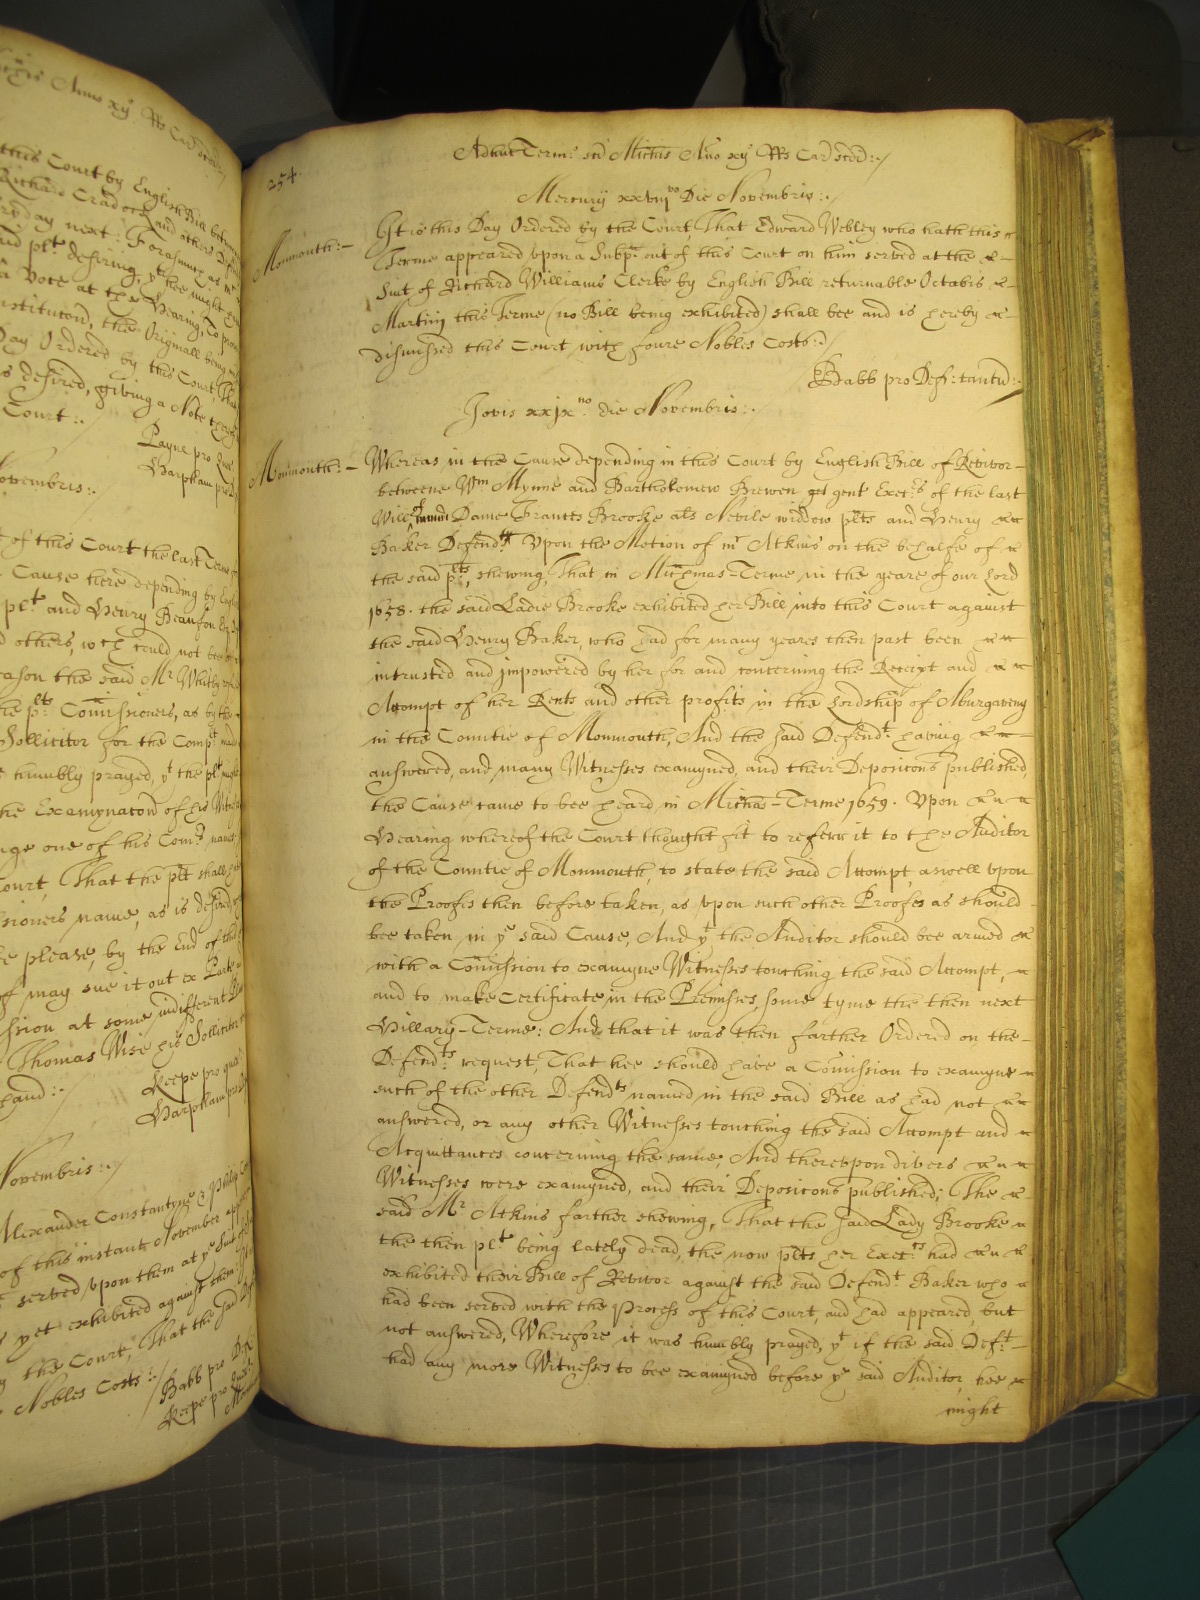 Regis Anno xij Rs Car scdi
this Court by English Bill
Richard Cradock and others
day next: Forasmuch as
said plt. desiring, yt hee might
a Vote at the Hearing, To
the Originall being
Day Ordered by this Court, That
as desired, giving a Note
Court:./
Payne pro Quer
Harpham pro
Novembris:./
of this Court the last Terme
Cause here depending by
plt. and Henry Beaufon
others, wch could not bee
reason the said Mr. Whitby
the plts. Comissioners, as by the
Sollicitor for the Compt.
humbly prayed, yt the plt might
the Examynacon of his
one of his Comrs. names
Court, That the plt shall
sioners name, as is desired,
hee please, by the End of this
may sue it out ex Parte
ssion at some indifferent
Thomas Wise his Sollicitor
hand:./
Keepe pro quer
Harpham pro
Novembris:./
Alexander Constantyne & Philip
of this instant November
served vpon them at ye Suit of
yet exhibited against them
the Court, That the said
Nobles Costs:./
Babb pro Deft
Keepe pro Quer
254.
Adhuc Term: sci Michis Año xij Rs Car scdi:./
Mercurij xxviijvo Die Novembris:./
Monmouth:- It is this Day Ordered by the Court That Edward Webley who hath this
Terme appeared vpon a Subp: out of this Court on him served at the
Suit of Richard Williams Clerke by English Bill returnable Octabis
Martini this Terme (no Bill being exhibited) shall bee and is hereby
dismissed this Court with foure Nobles Costs:./
Babb pro Def: tantu:./
Jovis xxixno. die Novembris:.
Monmouth:- Whereas in the Cause depending in this Court by English Bill of Revivor
betweene Wm Mynne and Bartholomew Brewen gent Exectrs. of the last
Will of Dame Frances Brooke als Nevile widdow plts and Henry
Baker Defendt. Vpon the Motion of mr Atkins on the behalfe of
the said plts, shewing, That in Michmas-Terme in the yeare of our Lord
1658. the said Ladie Brooke exhibited her Bill into this Court against
the said Henry Baker, who had for many yeares then past been
intrusted and impowered by her for and concerning the Receipt and
Accompt of her Rents and other profits in the Lordship of Aburgaveny
in the Countie of Monmouth, And the said Defendt. having
answered, and many Witnesses examyned, and their Deposicons published,
the Cause came to bee heard, in Michas-Terme 1659. Vpon
Hearing whereof the Court thought fit to referr it to the Auditor
of the Countie of Monmouth, to state the said Accompt aswell vpon
the Proofes then before taken, as vpon such other Proofes as should
bee taken in ye said Cause, And yt the Auditor should bee armed
with a Comission to examyne Witnesses touching the said Accompt,
and to make Certificate in the Premisses some tyme the then next
Hillary-Terme: And that it was then farther Ordered on the
Defendts: request, That hee should have a Comission to examyne
such of the other Defendts named in the said Bill as had not
answered, or any other Witnesses touching the said Accompt and
Acquittances concerning the same, And therevpon divers
Witnesses were examyned, and their Deposicons published; The
said Mr Atkins farther shewing, That the said Lady Brooke
the then plt. being lately dead, the now plts her Exectrs had
exhibited their Bill of Revivor against the said Defendt Baker who
had been served with the Process of this Court, and had appeared, but
not answered, Wherefore it was humbly prayed, yt if the said Deft.
had any more Witnesses to bee examyned before ye said Auditor, hee
might